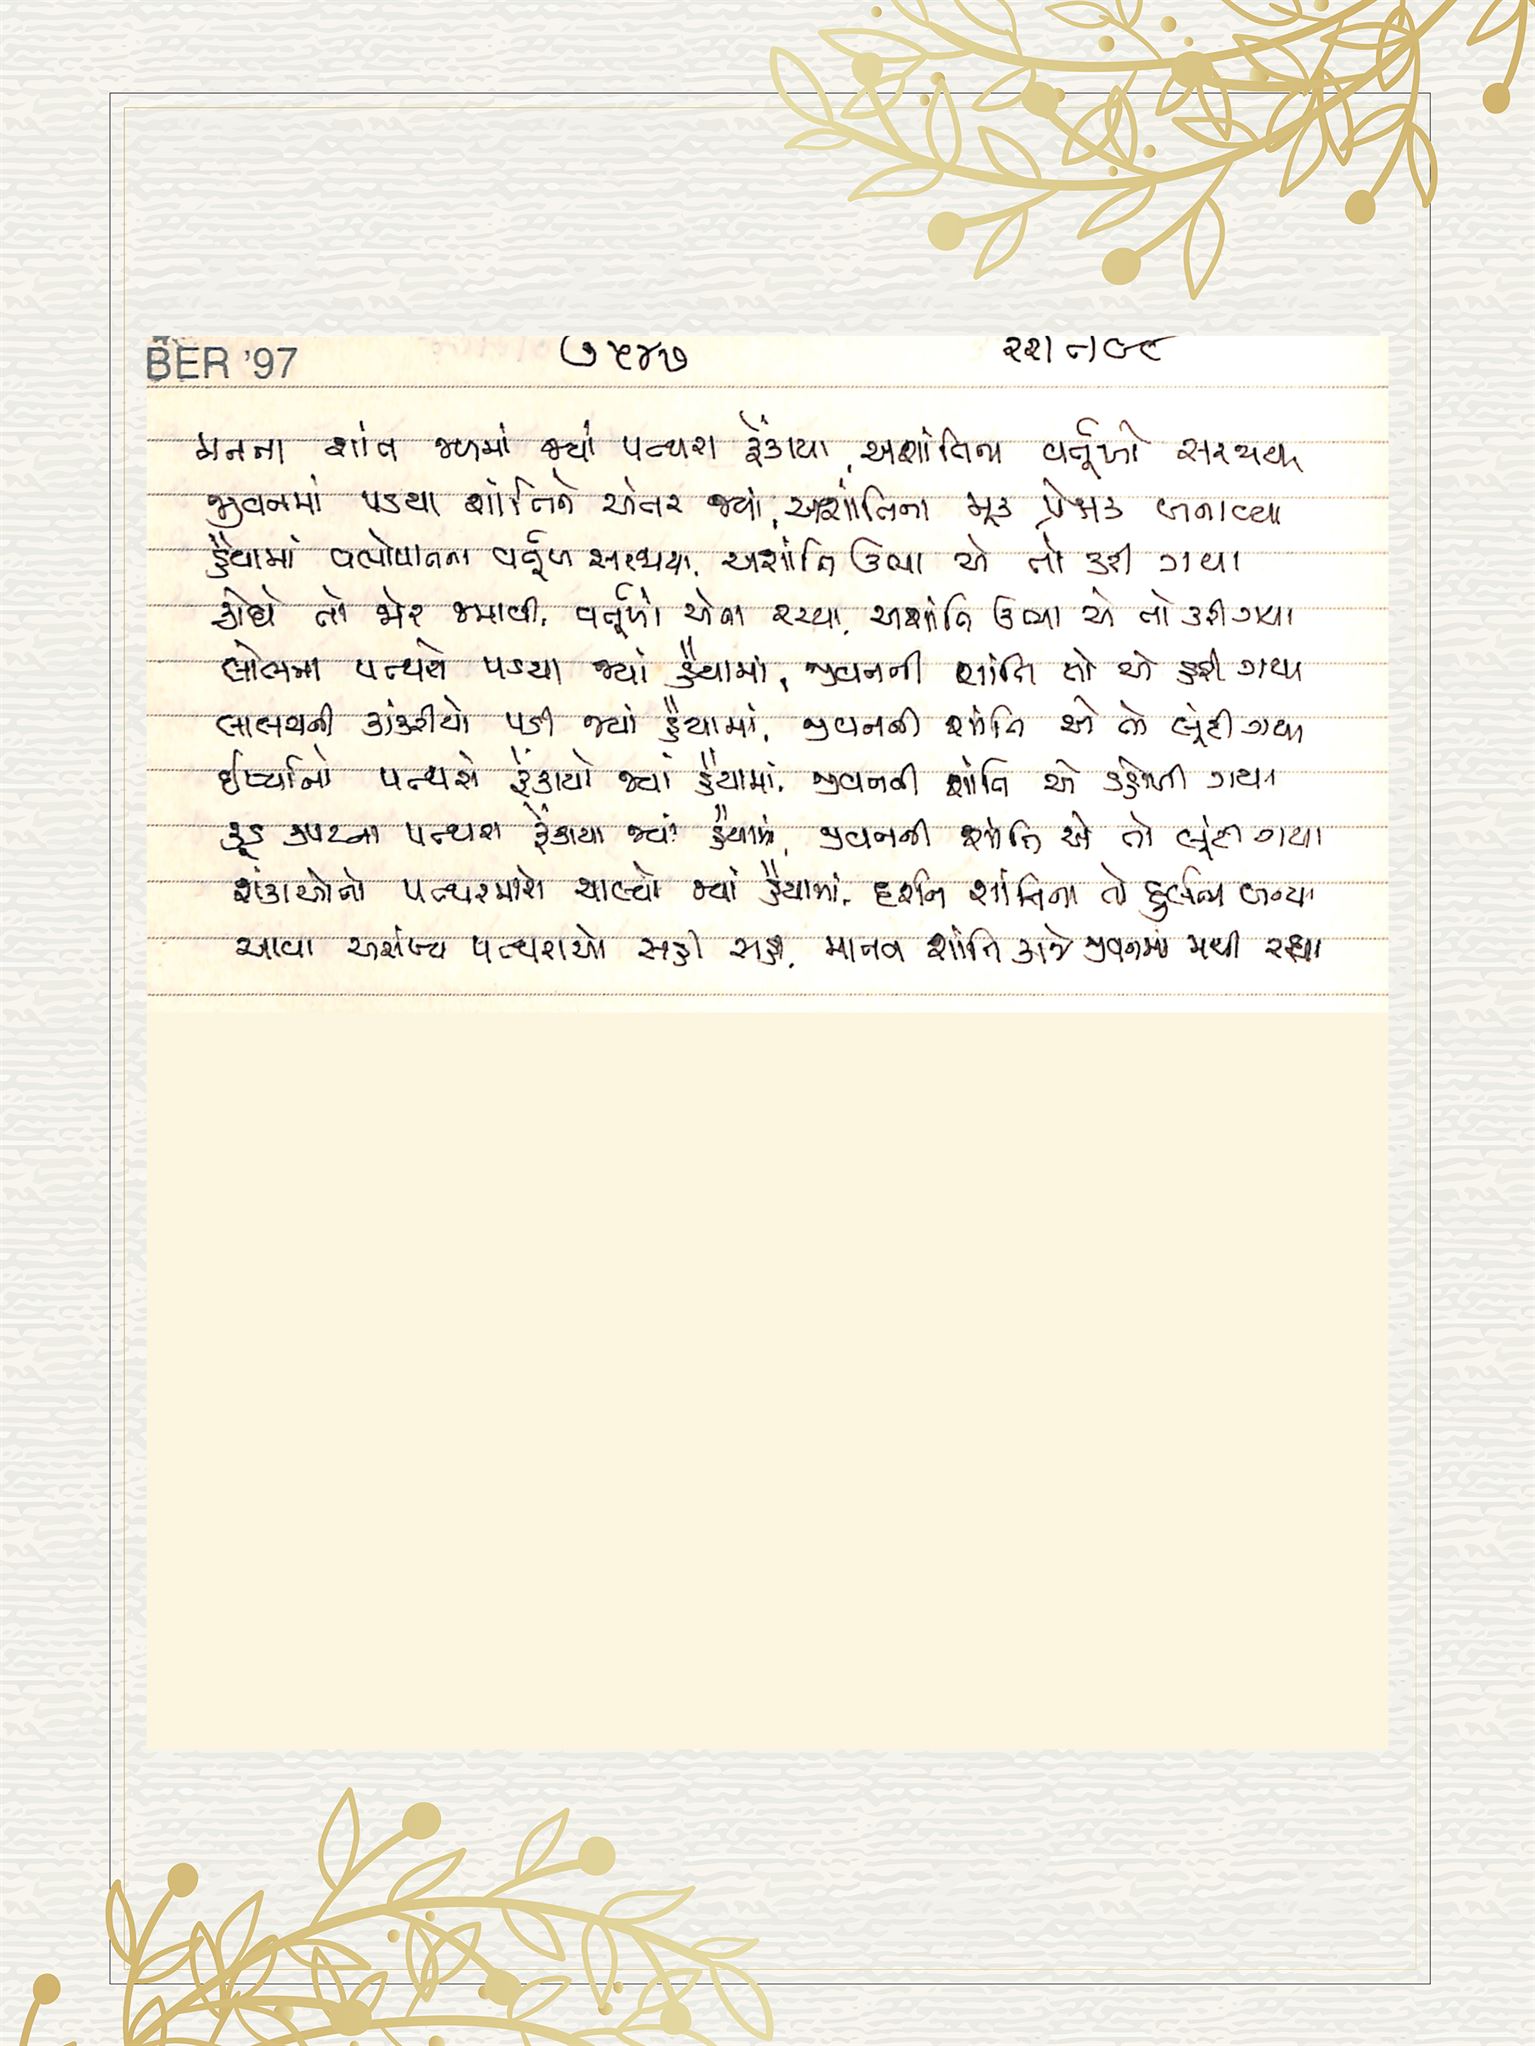 BER '97 ૭૫૪૭
મનના શાંત જળમાં જ્યાં પથ્થરા ફેંકાયા, અશાંતિના વર્તૂળો સરજાયા
જીવનમાં પડયા શાંતિને અંતર જ્યાં, અશાંતિના મૂક પ્રેક્ષક બનાવ્યા
હૈયામાં વર્તૂળ સરજાયા, અશાંતિ ઊભા એ તો કરી ગયા
ક્રોધે તો જોર જમાવી, વર્તૂળો એવા રચ્યા, અશાંતિ ઊભા એ તો કરી ગયા
લોભના પથ્થરો પડયા જ્યાં હૈયામાં, જીવનની શાંતિ તો એ હરી ગયા
લાલચની કાંકરીયો પડી જ્યાં હૈયામાં, જીવનની શાંતિ એ તો લૂંટી ગયા
ઈર્ષ્યાનો પથ્થરો ફેંકાયો જ્યાં હૈયામાં, જીવનની શાંતિ એ ડહોળી ગયા
કૂડ કપટના પથ્થરા ફેંકાયા જ્યાં હૈયામાં, જીવનની શાંતિ એ તો લૂંટી ગયા
શંકાઓનો પથ્થરમારો ચાલ્યો જ્યાં હૈયામાં, દર્શન શાંતિના તો દુર્લભ બન્યા
આવા અસંખ્ય પથ્થરાઓ સહી સહી, માનવ શાંતિ કાજે જીવનમાં મથી રહ્યા